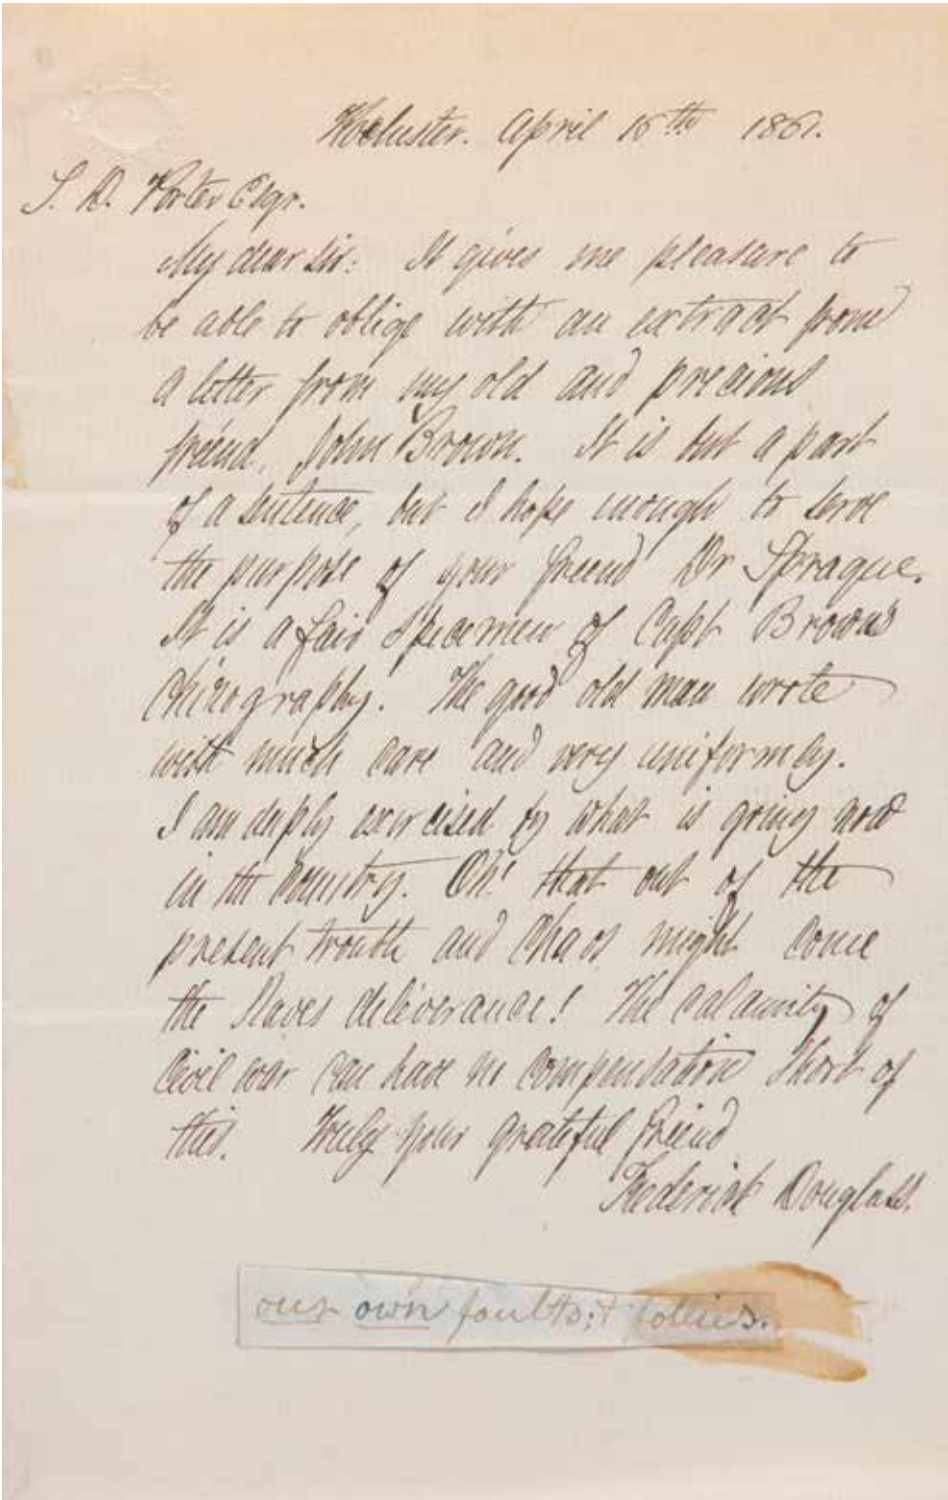 Rochester. April 15th 1861.
S. D. Porter Esqr.
My dear Sir: It gives me pleasure to
be able to oblige with an extract from
a letter from my old and precious
friend, John Brown. It is but a part
of a sentence, but I hope enough to serve
the purpose of your friend Dr Sprague.
It is a fair specimen of Capt Brown's
Chirography. The good old man wrote
with much care and very uniformly.
I am deeply exercised by what is going now
in the Country. Oh! that out of the
present trouble and Chaos might come
the Slaves deliverance! The calamity of
Civil war can have no compensation short of
this. Truly your grateful friend
Frederick Douglass.
our own faults; & follies.